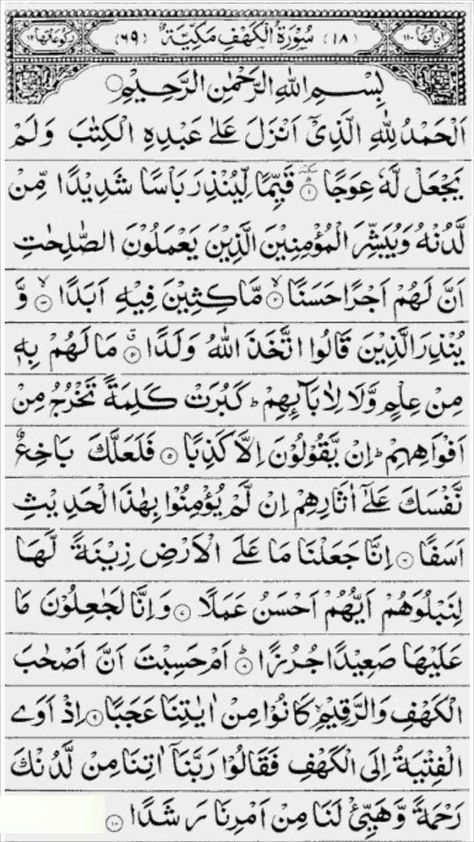 اٰيَاتُهَا ١١٠ (١٨) سُوْرَةُ الْكَهْفِ مَكِّيَّةٌ (٦٩) رُكُوْعَاتُهَا ١٢
بِسْمِ اللّٰهِ الرَّحْمٰنِ الرَّحِيْمِ
اَلْحَمْدُ لِلّٰهِ الَّذِيْٓ اَنْزَلَ عَلٰى عَبْدِهِ الْكِتٰبَ وَلَمْ
يَجْعَلْ لَّهٗ عِوَجًا ۝١ قَيِّمًا لِّيُنْذِرَ بَاْسًا شَدِيْدًا مِّنْ
لَّدُنْهُ وَيُبَشِّرَ الْمُؤْمِنِيْنَ الَّذِيْنَ يَعْمَلُوْنَ الصّٰلِحٰتِ
اَنَّ لَهُمْ اَجْرًا حَسَنًا ۝٢ مَّاكِثِيْنَ فِيْهِ اَبَدًا ۝٣ وَّ
يُنْذِرَ الَّذِيْنَ قَالُوا اتَّخَذَ اللّٰهُ وَلَدًا ۝٤ مَا لَهُمْ بِهٖ
مِنْ عِلْمٍ وَّلَا لِاٰبَآئِهِمْ ؕ كَبُرَتْ كَلِمَةً تَخْرُجُ مِنْ
اَفْوَاهِهِمْ ؕ اِنْ يَّقُوْلُوْنَ اِلَّا كَذِبًا ۝٥ فَلَعَلَّكَ بَاخِعٌ
نَّفْسَكَ عَلٰٓى اٰثَارِهِمْ اِنْ لَّمْ يُؤْمِنُوْا بِهٰذَا الْحَدِيْثِ
اَسَفًا ۝٦ اِنَّا جَعَلْنَا مَا عَلَى الْاَرْضِ زِيْنَةً لَّهَا
لِنَبْلُوَهُمْ اَيُّهُمْ اَحْسَنُ عَمَلًا ۝٧ وَاِنَّا لَجٰعِلُوْنَ مَا
عَلَيْهَا صَعِيْدًا جُرُزًا ۝٨ اَمْ حَسِبْتَ اَنَّ اَصْحٰبَ
الْكَهْفِ وَالرَّقِيْمِ كَانُوْا مِنْ اٰيٰتِنَا عَجَبًا ۝٩ اِذْ اَوَى
الْفِتْيَةُ اِلَى الْكَهْفِ فَقَالُوْا رَبَّنَآ اٰتِنَا مِنْ لَّدُنْكَ
رَحْمَةً وَّهَيِّئْ لَنَا مِنْ اَمْرِنَا رَشَدًا ۝١٠